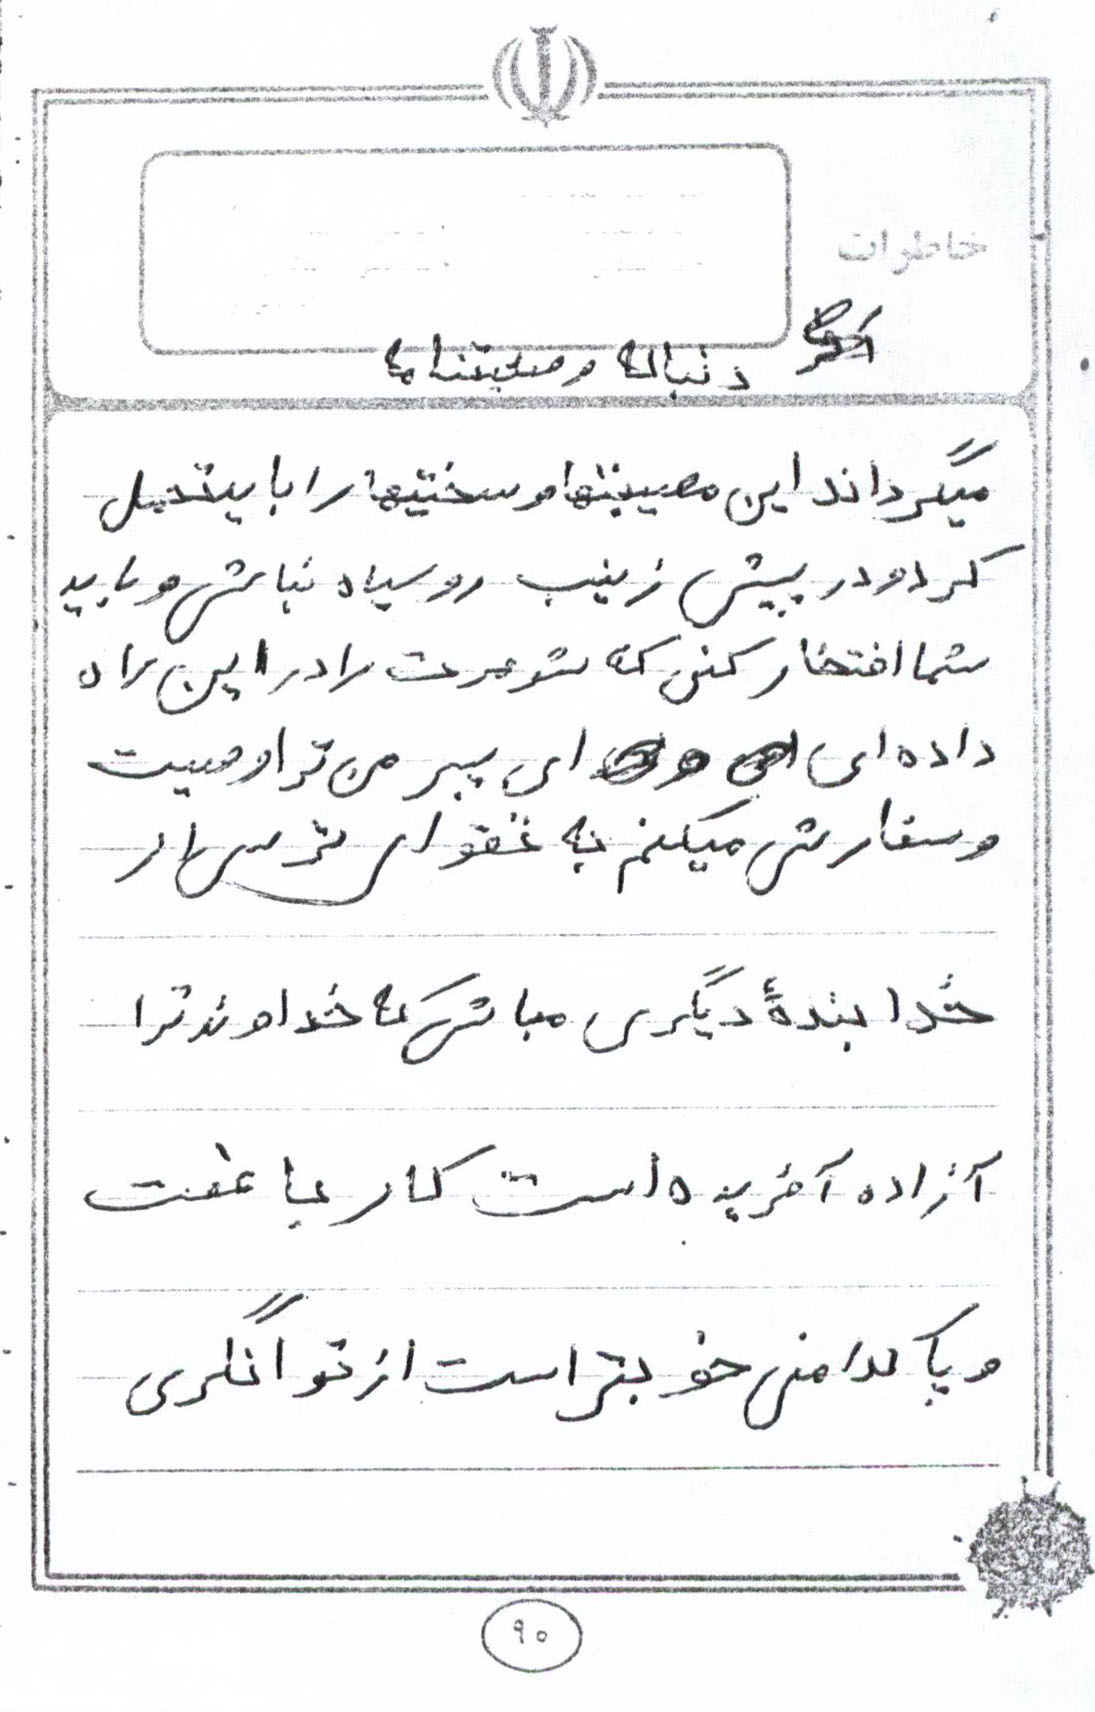 خاطرات
دنباله وصیتنامه
میگرداند این مصیبتها و سختیها را باید تحمل
کرد و در پیش زینب روسیاه نباشی و باید
شما افتخار کنی که شوهرت را در این راه
داده‌ای ای پسر من ترا وصیت
و سفارش میکنم به تقوای ترس از
خدا بندۀ دیگری مباش که خداوند ترا
آزاده آفریده است کار با عفت
و پاکدامنی خو بتر است از توانگری
۹۰